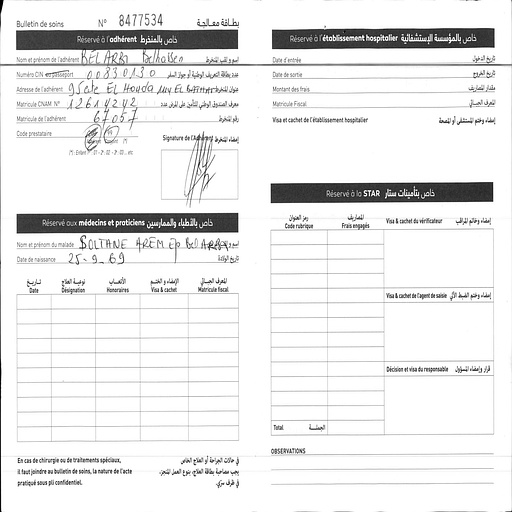 Bulletin de soins N° 8477534 بطاقة معالجة
Réservé à l'adhérent خاص بالمنخرط
Nom et prénom de l'adhérent BELARBI Belhassen إسم و لقب المنخرط
Numéro CIN ou passeport 00830130 عدد بطاقة التعريف الوطنية أو جواز السفر
Adresse de l'adhérent Cite El Houda عنوان المنخرط
Matricule CNAM N° 12614242 معرف الصندوق الوطني للتأمين على المرض عدد
Matricule de l'adhérent 67057 رقم المنخرط
Code prestataire
(*) : Enfant 01 - 2ème 02 - 3ème 03 , etc
Signature de l'Adhérent إمضاء المنخرط
Réservé aux médecins et praticiens خاص بالأطباء والممارسين
Nom et prénom du malade SOLTANE AREM Ep BELARBI
Date de naissance 25-9-69 تاريخ الولادة
تاريخ نوعية العلاج الأتعاب الإمضاء و الختم المعرف الجبائي
Date Désignation Honoraires Visa & cachet Matricule fiscal
En cas de chirurgie ou de traitements spéciaux,
il faut joindre au bulletin de soins, la nature de l'acte
pratiqué sous pli confidentiel.
في حالات الجراحة أو العلاج الخاص
يجب مصاحبة بطاقة العلاج، بنوع العمل المنجز،
في ظرف سري.
Réservé à l'établissement hospitalier خاص بالمؤسسة الإستشفائية
Date d'entrée تاريخ الدخول
Date de sortie تاريخ الخروج
Montant des frais مقدار المصاريف
Matricule Fiscal المعرف الجبائي
Visa et cachet de l'établissement hospitalier إمضاء وختم المستشفى أو المصحة
Réservé à la STAR خاص بتأمينات ستار
رمز العنوان المصاريف
Code rubrique Frais engagés
Visa & cachet du vérificateur إمضاء وخاتم المراقب
Visa & cachet de l'agent de saisie إمضاء وختم الضبط الآلي
Décision et visa du responsable قرار وإمضاء المسؤول
Total الجملة
OBSERVATIONS